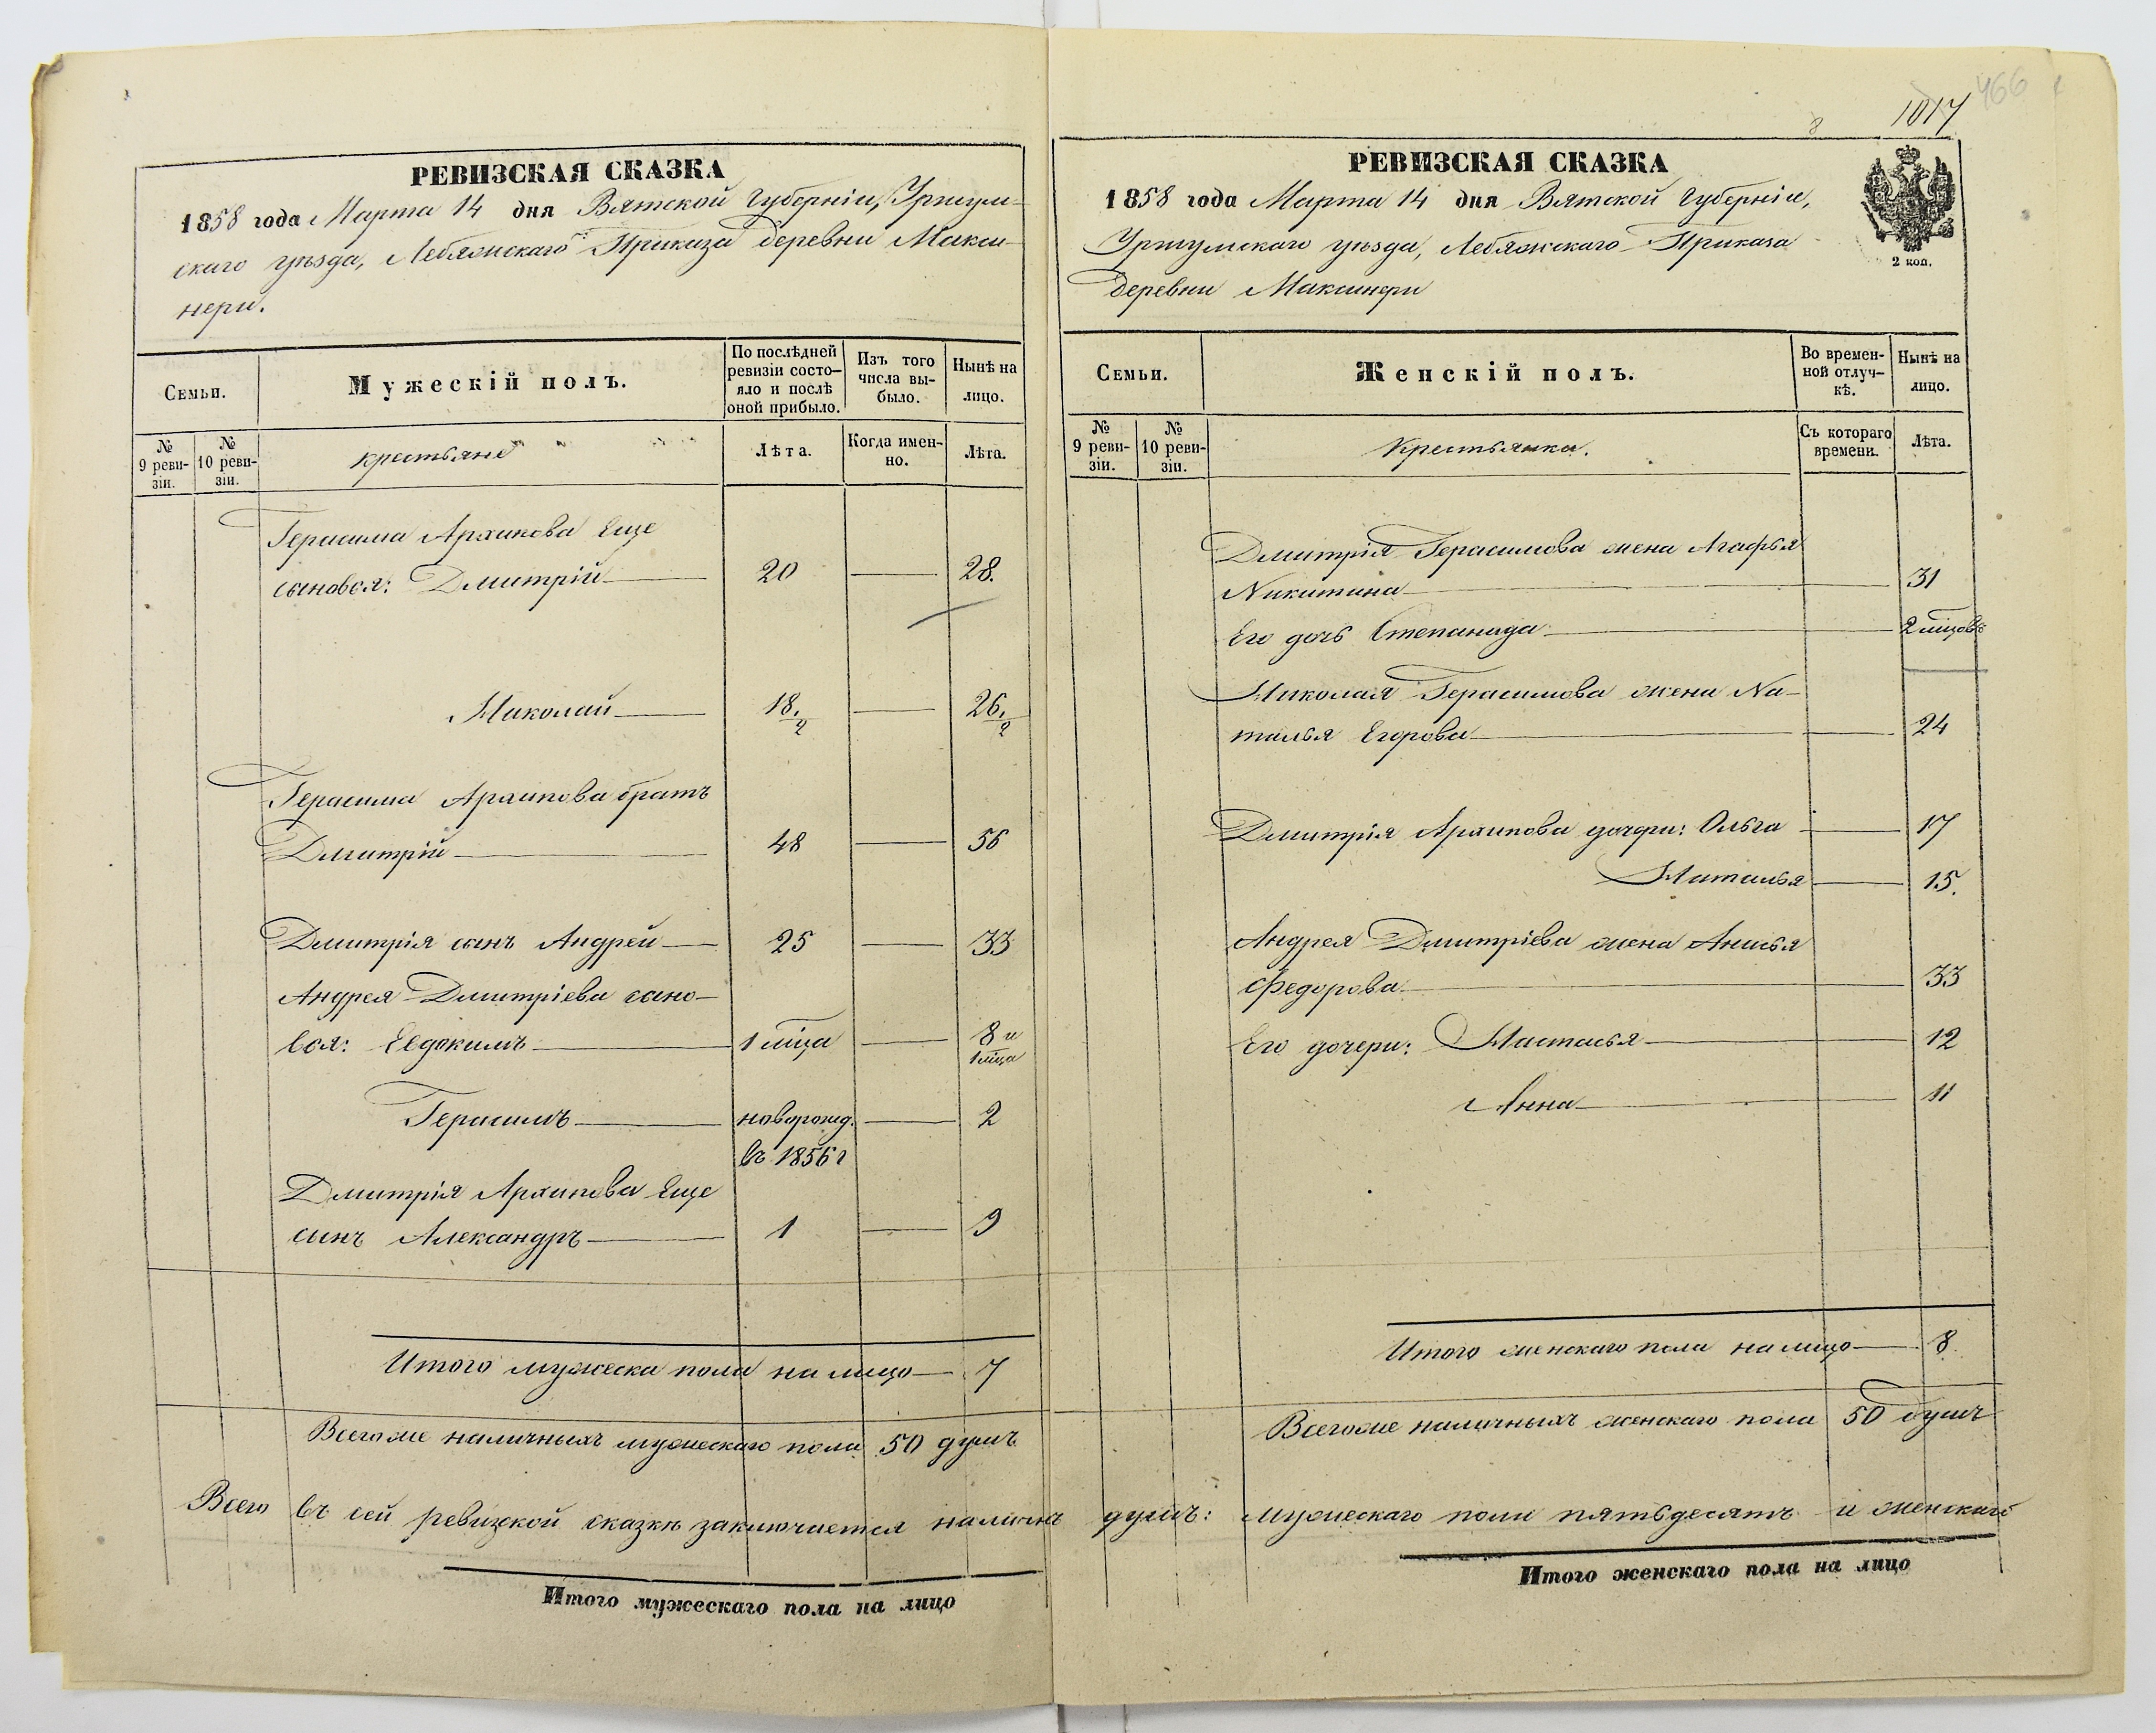 РЕВИЗСКАЯ СКАЗКА
1858 года Марта 14 дня Вятской Губерніи, Уржум-
скаго уѣзда, Лебяжскаго Приказа деревни Макси-
нери.
Семьи.
Мужескій полъ.
По послѣдней
ревизіи состо-
яло и послѣ
оной прибыло.
Изъ того
числа вы-
было.
Нынѣ на
лицо.
№
9 реви-
зіи.
№
10 реви-
зіи.
крестьяне
Лѣта.
Когда имен-
но.
Лѣта.
Герасима Архипова еще
сыновья: Дмитрій 20 28.
Николай 18 1/2 26 1/2
Герасима Архипова братъ
Дмитрій 48 56
Дмитрія сынъ Андрей 25 33
Андрея Дмитріева сыно-
вья: Евдокимъ 1 мца 8 и
1 мца
Герасимъ новорожд. 2
въ 1856 г
Дмитрія Архипова еще
сынъ Александръ 1 9
Итого мужеска пола на лицо 7
Всего же наличныхъ мужескаго пола 50 душъ
Итого мужескаго пола на лицо
466
1017
8
РЕВИЗСКАЯ СКАЗКА
1858 года Марта 14 дня Вятской Губерніи,
Уржумскаго уѣзда, Лебяжскаго Приказа
деревни Максинери
2 коп.
Семьи.
Женскій полъ.
Во времен-
ной отлуч-
кѣ.
Нынѣ на
лицо.
№
9 реви-
зіи.
№
10 реви-
зіи.
Крестьянки.
Съ котораго
времени.
Лѣта.
Дмитрія Герасимова жена Агафья
Никитина 31
Его дочь Степанида 2 мцовъ
Николая Герасимова жена На-
талья Егорова 24
Дмитрія Архипова дочери: Ольга 17
Наталья 15.
Андрея Дмитріева жена Анисья
Федорова 33
Его дочери: Настасья 12
Анна 11
Итого женскаго пола на лицо 8
Всего же наличныхъ женскаго пола 50 душъ
Всего въ сей ревизской сказкѣ заключается наличныхъ душъ: мужескаго пола пятьдесятъ и женскаго
Итого женскаго пола на лицо